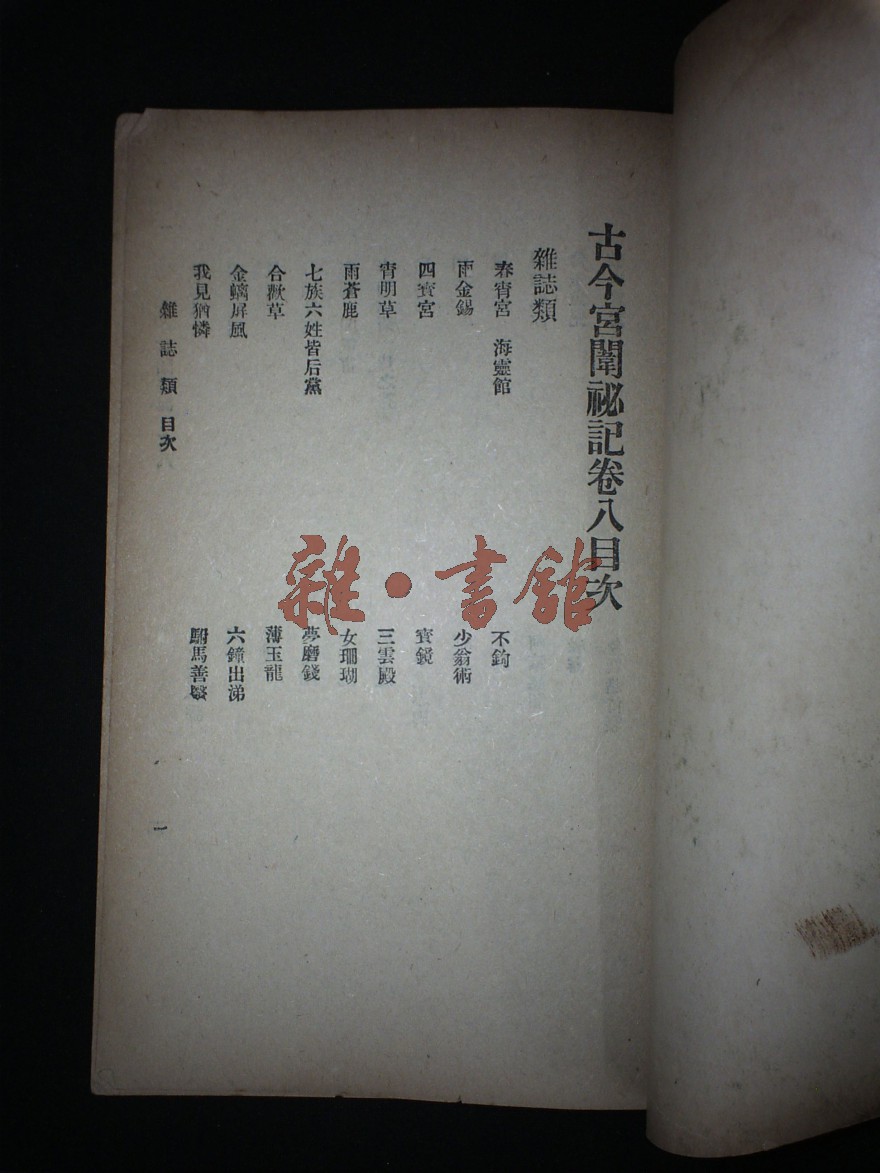 古今宮闈祕記卷八目次
雜誌類
春宵宮 海靈館
不鉤
雨金錫
少翁術
四寶宮
寶鏡
宵明草
三雲殿
雨蒼鹿
女珊瑚
七族六姓皆后黨
夢磨錢
合歡草
薄玉龍
金螭屏風
六鐘出涕
我見猶憐
駙馬善醫
雜誌類 目次
一
雜·書館